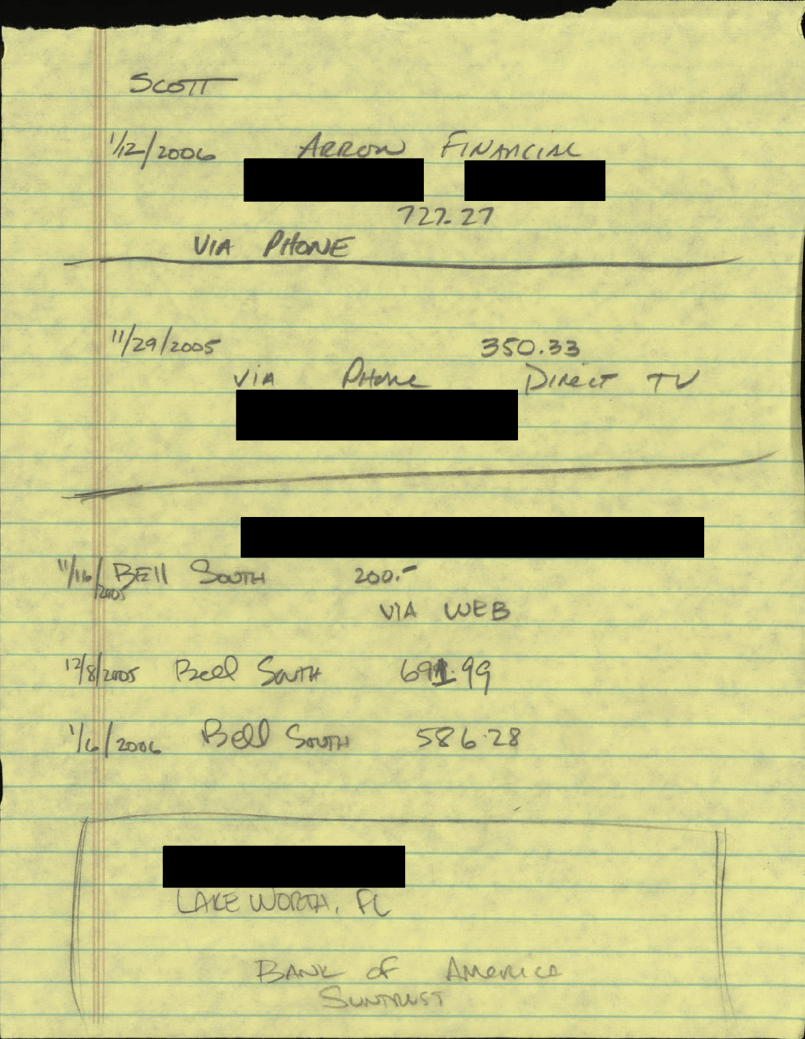 SCOTT
1/12/2006 ARROW FINANCIAL
727.27
VIA PHONE
11/29/2005 350.33
VIA PHONE DIRECT TV
11/16/2005 BELL SOUTH 200.-
VIA WEB
12/8/2005 Bell SOUTH 691.99
1/6/2006 Bell SOUTH 586.28
LAKE WORTH, FL
BANK OF AMERICA
SUNTRUST